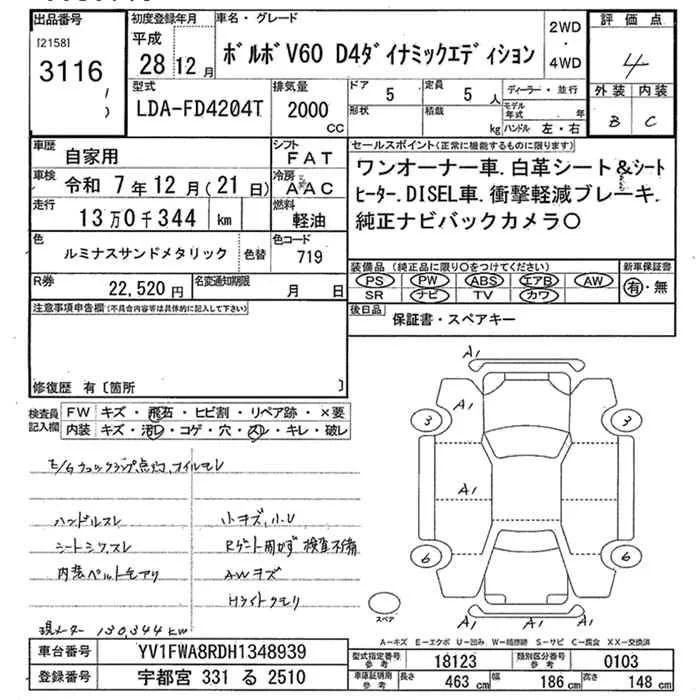 出品番号
[2158]
3116
初度登録年月
平成
28年12月
車名・グレード
ボルボV60 D4ダイナミックエディション
2WD・4WD
評価点
4
外装 内装
B C
型式
LDA-FD4204T
排気量
2000
CC
ドア 5
定員 5人
形状
積載 kg
ディーラー・並行
モデル年式 年
ハンドル 左・右
車歴 自家用
シフト FAT
車検 令和 7年12月(21日)
冷房 AAC
走行 13万0千344 km
燃料 軽油
色 ルミナスサンドメタリック
色替
色コード 719
R券 22,520円
名変通知期限 月 日
セールスポイント(正常に機能するものに限ります)
ワンオーナー車.白革シート&シート
ヒーター.DISEL車.衝撃軽減ブレーキ.
純正ナビバックカメラ〇
装備品(純正品に限り○をつけてください)
PS PW ABS エアB AW
SR ナビ TV カワ
新車保証書
有・無
後日品
保証書・スペアキー
注意事項申告欄(不具合内容等は具体的に記入して下さい)
修復歴 有〔箇所 〕
検査員記入欄
FW キズ・飛石・ヒビ割・リペア跡・×要
内装 キズ・汚レ・コゲ・穴・スレ・キレ・破レ
E/Gチェックランプ点灯,オイルモレ
ハンドルスレ
シートシワ,スレ
小キズ,小U
AWキズ
Hライトクモリ
現メーター 130,344 km
A1
A1
3
3
A1
6
6
A1
A1
スペア
A-キズ E-エクボ U-凹み W-補修跡 S-サビ C-腐食 XX-交換済
車台番号 YV1FWA8RDH1348939
登録番号 宇都宮 331 る 2510
型式指定番号 参考 18123
類別区分番号 参考 0103
車庫証明用 参考
長さ 463 cm
幅 186 cm
高さ 148 cm